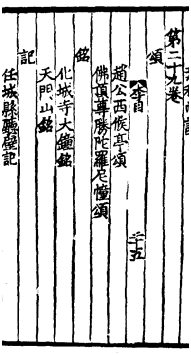 第二十九卷
頌
趙公西候亭頌
佛頂尊勝陀羅尼幢頌
銘
化城寺大鐘銘
天門山銘
記
任城縣廳壁記